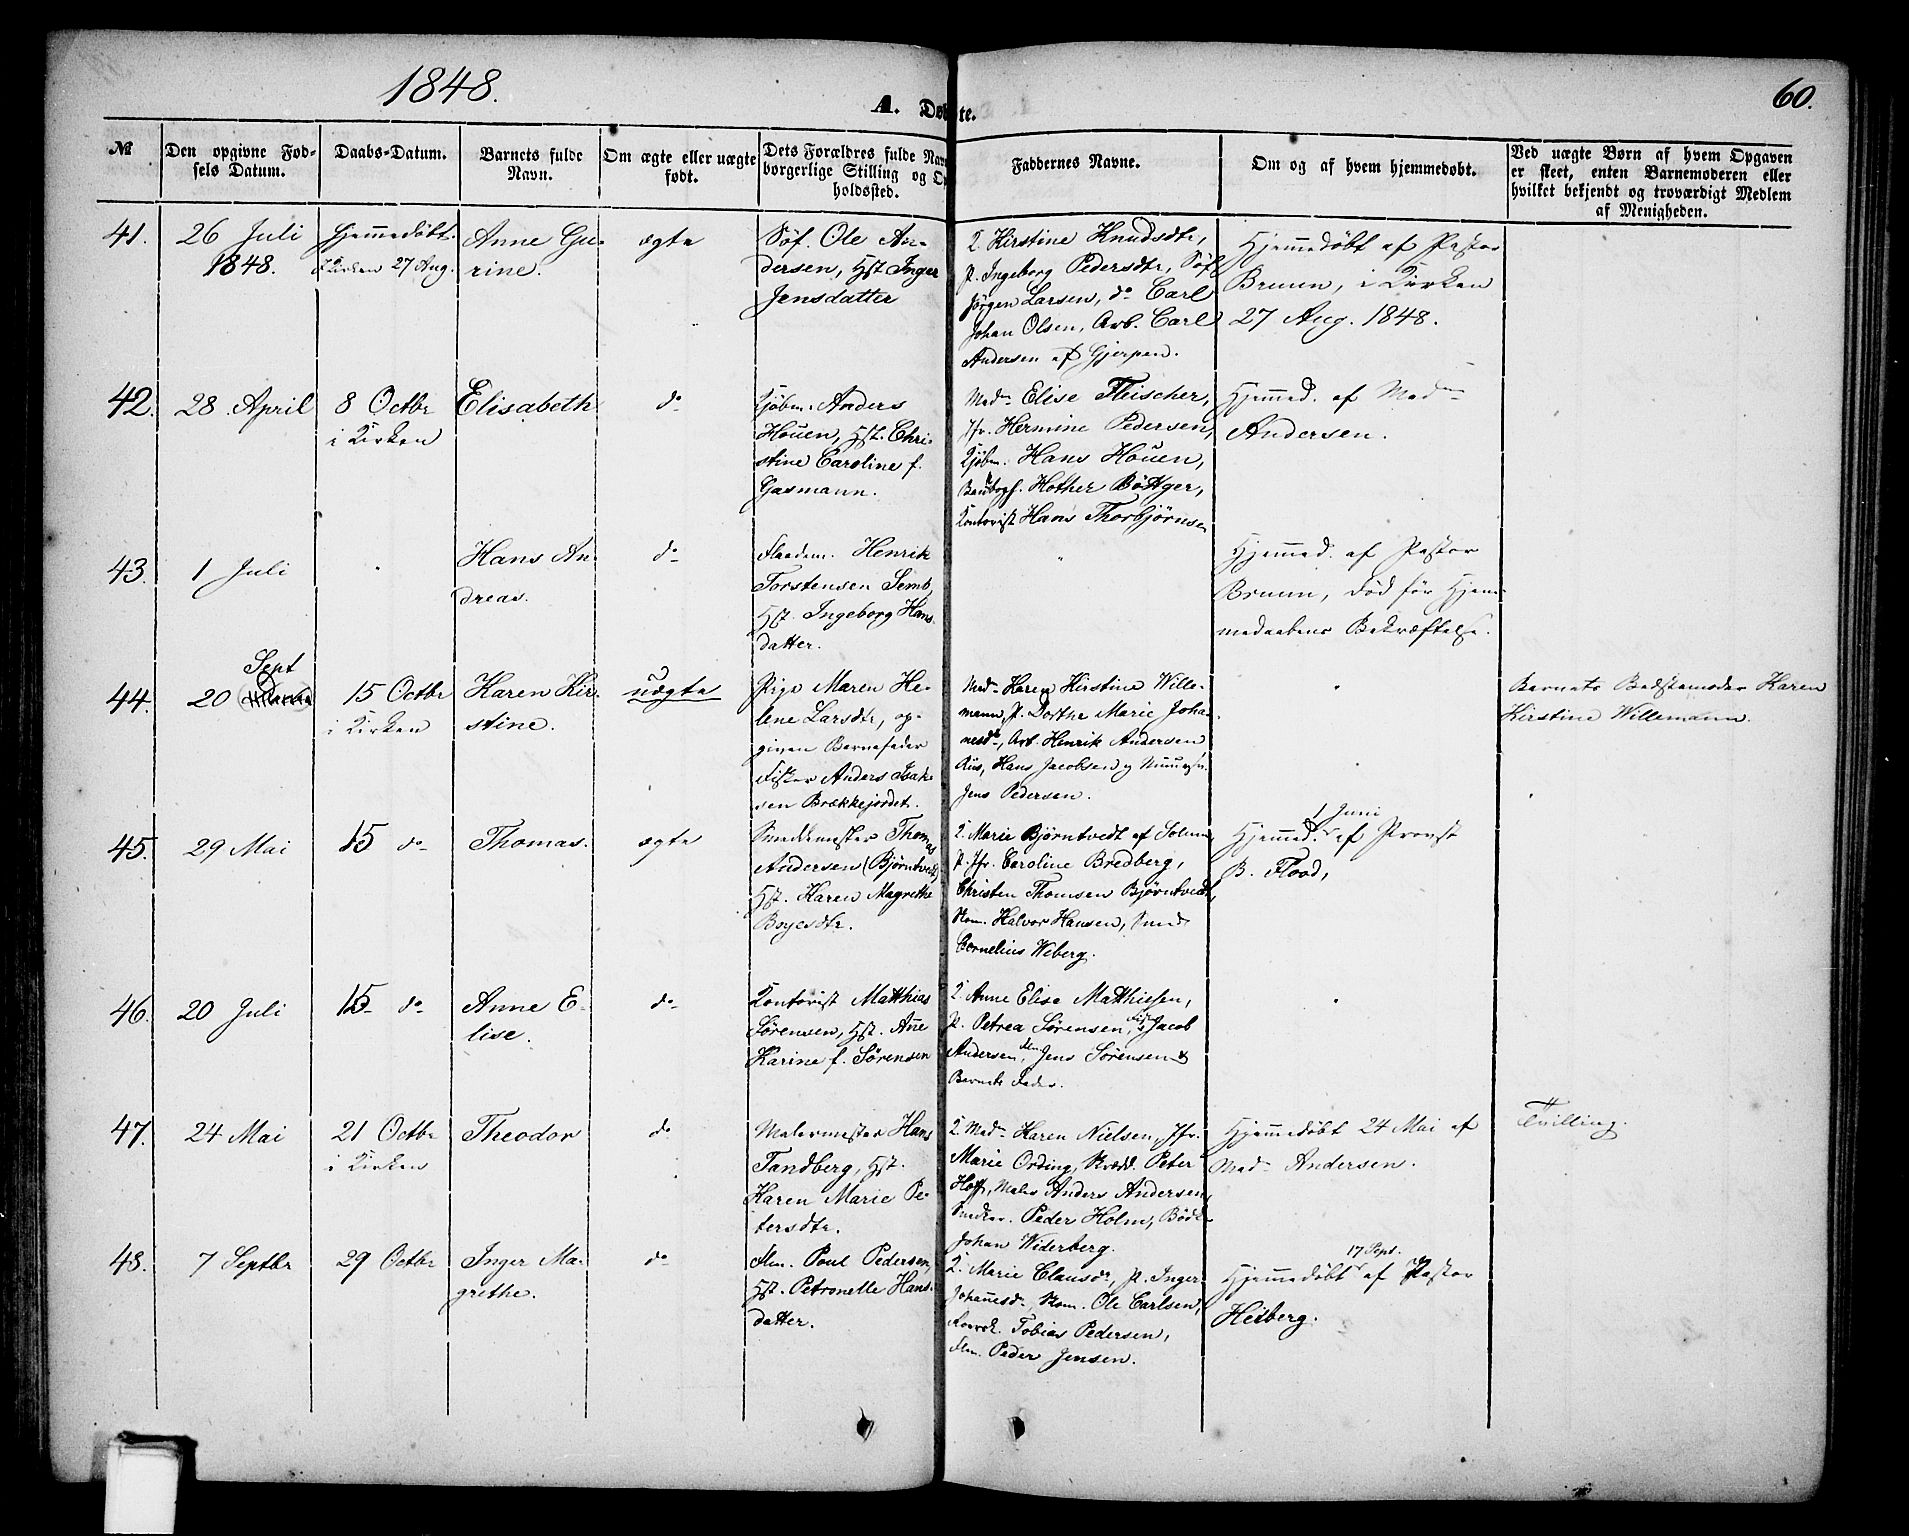 1848.
A. Døbte.
60.
No
Den opgivne Fød-
sels Datum.
Daabs-Datum.
Barnets fulde
Navn.
Om ægte eller uægte
født.
Dets Forældres fulde Nav
borgerlige Stilling og Op
holdssted.
Faddernes Navne.
Om og af hvem hjemmedøbt.
Ved uægte Børn af hvem Opgaven
er skeet, enten Barnemoderen eller
hvilket bekjendt og troværdigt Medlem
af Menigheden.
41.
26 Juli
1848.
Hjemmedøbt.
Kirken 27 Aug.
Anne Gu-
rine.
ægte
Søf. Ole An-
dersen, Hst. Inger
Jensdatter
2. Kirstine Knudsdtr,
p. Ingeborg Pedersdtr, Søf.
Jørgen Larsen, do Carl
Johan Olsen, Arb. Carl
Andersen af Gjerpen.
Hjemmedøbt af Pastor
Bruun, i Kirken
27 Aug. 1848.
42.
28 April
8 Octbr
i Kirken
Elisabeth
do
Kjøbm. Anders
Houen, Hst. Chri-
stine Caroline f.
Gasmann.
Mad. Elise Fleischer,
Jfr. Hermine Pedersen,
Kjøbm. Hans Houen,
Hother Bøttger,
Kontorist Hans Thorbjørnsen
Hjemmed. af Mad
Andersen.
43.
1 Juli
Hans An-
dreas.
do
Flaadem. Henrik
Torstensen Semb,
Hst. Ingeborg Hans
datter.
Hjemmed. af Pastor
Bruun, død før Hjem-
medaabens Bekræftelse.
44.
Sept
20
15 Octbr
i Kirken
Karen Kir-
stine.
uægte
Pige Maren He-
lene Larsdtr, op-
given Barnefader
Fisker Anders Isak-
sen Brækkejordet.
Mad. Karen Kirstine Wille-
mann, p. Dorthe Marie Joha-
nesdr, Arb. Henrik Andersen
Riis, Hans Jacobsen og Muursv.
Jens Pedersen.
Barnets Bedstemoder Karen
Kirstine Willemann.
45.
29 Mai
15 do
Thomas.
ægte
Smeddemester Thomas
Andersen (Bjørntvedt)
Hst. Karen Magrethe
Boyesdtr.
2. Marie Bjørntvedt af Solum,
p. Jfr. Caroline Bredberg,
Christen Thomsen Bjørntvedt,
Skom. Halvor Hansen, Smed
Cornelius Weberg.
1 Juni
Hjemmed. af Provst
B. Flood,
46.
20 Juli
15 do
Anne E-
lise.
do
Kontorist Matthias
Sørensen, Hst. Ane
Karine f. Sørensen
2. Anne Elise Matthiesen,
p. Petrea Sørensen, Jacob
Andersen, Jens Sørensen &
Barnets Fader.
47.
24 Mai
21 Octbr
i Kirken
Theodor
do
Malermester Hans
Tandberg, Hst.
Karen Marie Pe-
tersdtr.
2. Mad. Karen Nielsen, Jfr.
Marie Ording, Skrædd. Peter
Hoff, Maler Anders Andersen,
Snedker. Peder Holm, Bødk.
Johan Widerberg.
Hjemmedøbt 24 Mai af
Mad. Andersen.
Tvilling.
48.
7 Septbr
29 Octbr
Inger Ma-
grethe.
do
Flm. Poul Pedersen,
Hst. Petronelle Hans-
datter.
2. Marie Clausdr, p. Inger
Johannesdr, Skom. Ole Carlsen,
Tobias Pedersen,
Flm. Peder Jensen.
17 Sept.
Hjemmedøbt af Pastor
Heiberg.